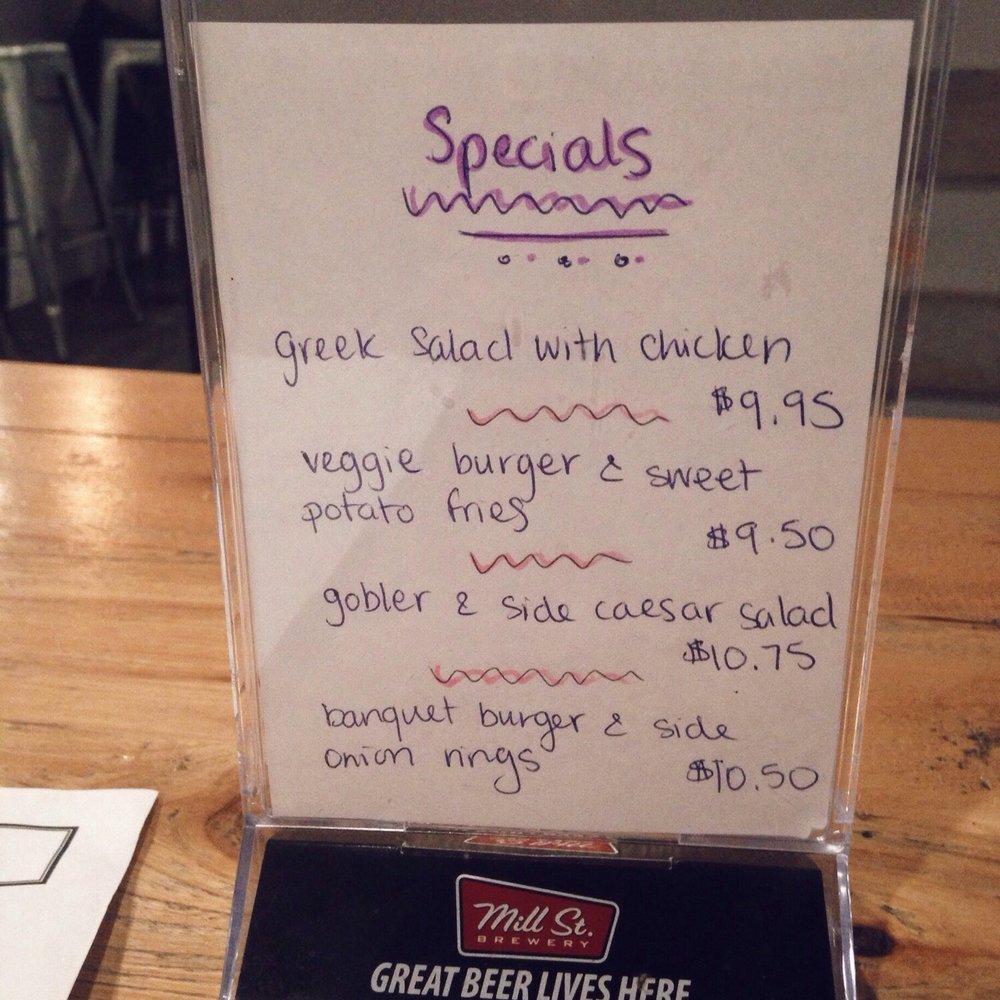 Specials
greek salad with chicken
$9.95
veggie burger & sweet
potato fries
$9.50
gobler & side caesar salad
$10.75
banquet burger & side
onion rings
$10.50
Mill St.
BREWERY
GREAT BEER LIVES HERE